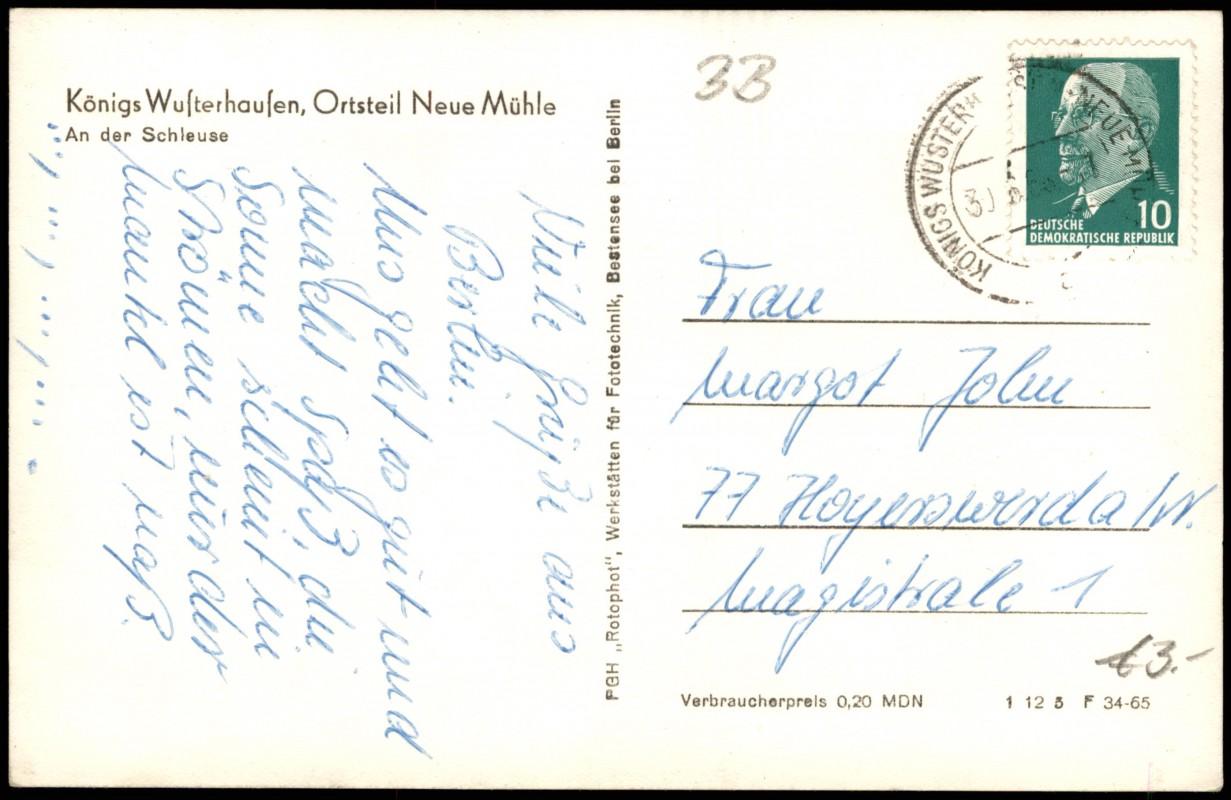 Königs Wuſterhauſen, Ortsteil Neue Mühle
An der Schleuse
Viele Grüße aus
Berlin.
Uns geht es gut und
macht Spaß, die
Sonne scheint in
Strömen, nur der
Mantel ist naß.
PGH „Rotophot", Werkstätten für Fototechnik, Bestensee bei Berlin
33
KÖNIGS WUSTERH
NEUE M
DEUTSCHE
DEMOKRATISCHE REPUBLIK
10
Frau
Margot John
77 Hoyerswerda/N.
Magistrale 1
€3.-
Verbraucherpreis 0,20 MDN
1 12 5 F 34-65